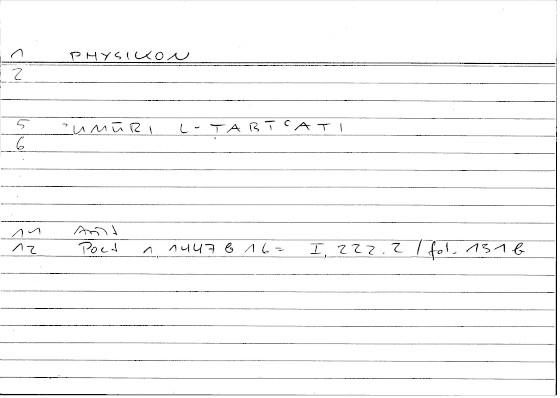 1 PHYSIKON
2
5 ʾUMŪRI L-ṬABĪʿATI
6
11 Arist
12 Poet 1, 1447 b 16 = I, 222.2 / fol. 131 b